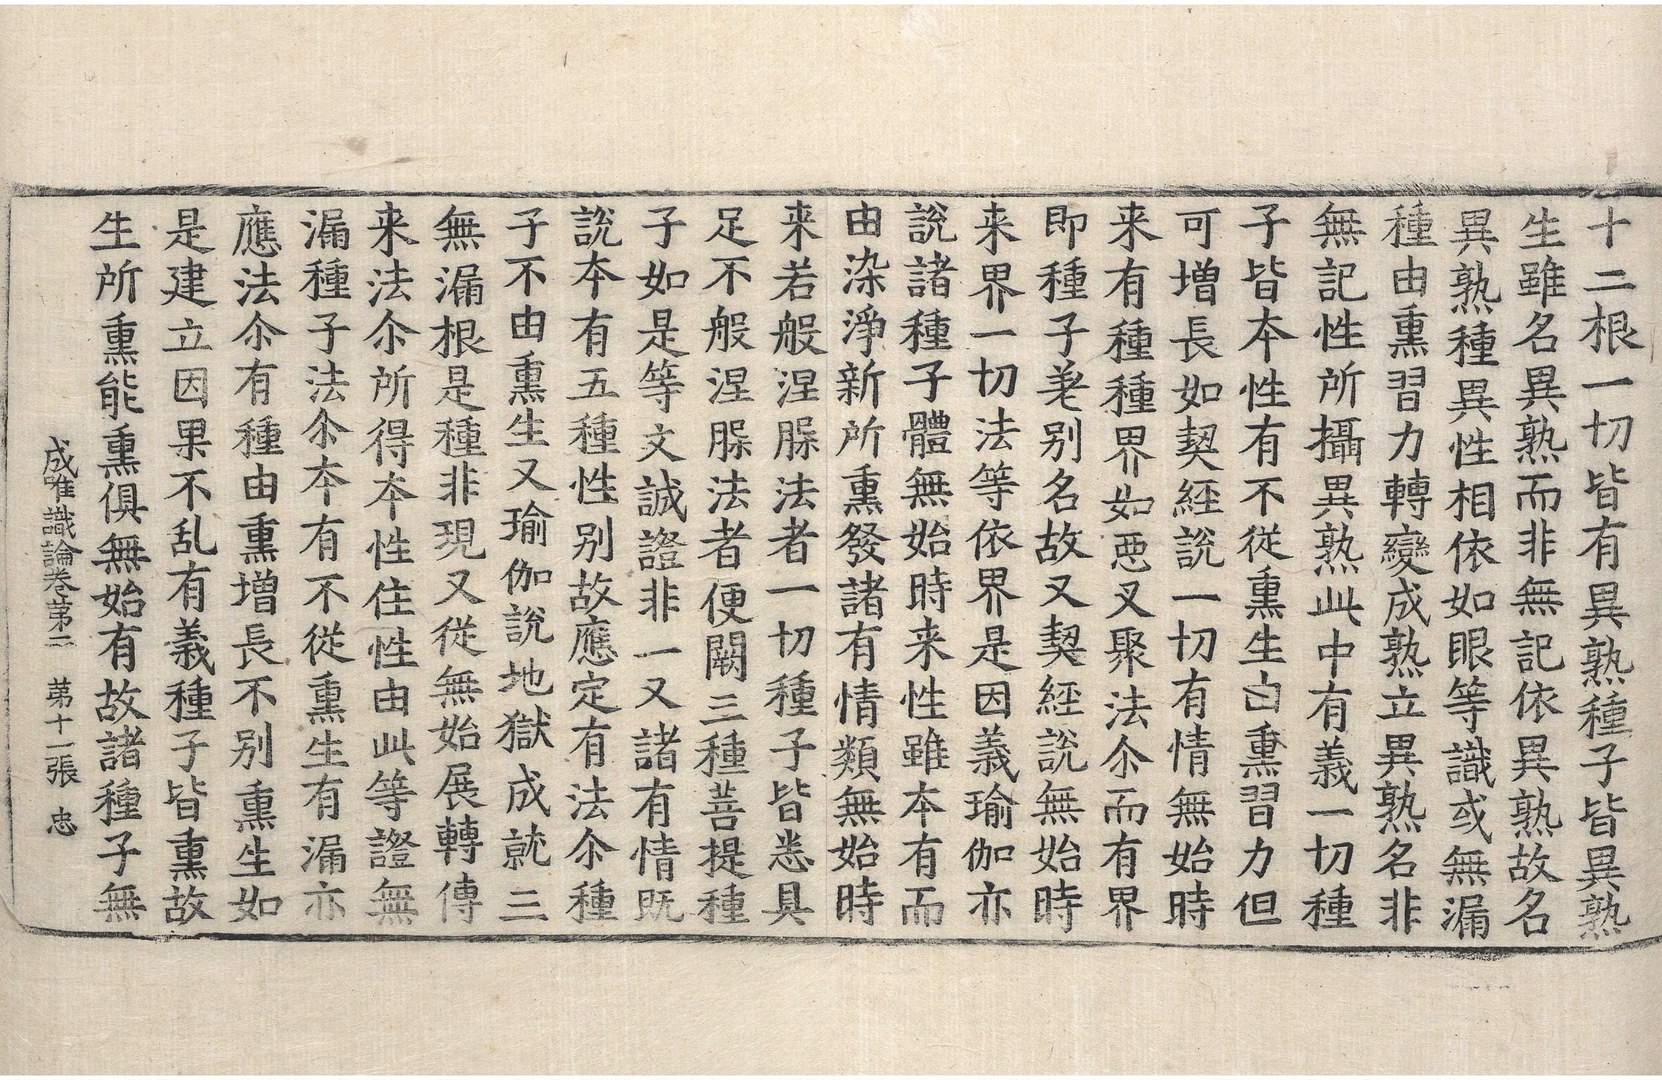 十二根一切皆有異熟種子皆異熟
生雖名異熟而非無記依異熟故名
異熟種異性相依如眼等識或無漏
種由熏習力轉變成熟立異熟名非
無記性所攝異熟此中有義一切種
子皆夲性有不從熏生由熏習力但
可增長如契經說一切有情無始時
来有種種界如惡叉聚法尒而有界
即種子差别名故又契經說無始時
来界一切法等依界是因義瑜伽亦
說諸種子體無始時来性雖夲有而
由染淨新所熏發諸有情類無始時
来若般涅槃法者一切種子皆悉具
足不般涅槃法者便闕三種菩提種
子如是等文誠證非一又諸有情既
說夲有五種性别故應定有法尒種
子不由熏生又瑜伽說地獄成就三
無漏根是種非現又從無始展轉傳
来法尒所得夲性住性由此等證無
漏種子法尒夲有不從熏生有漏亦
應法尒有種由熏增長不别熏生如
是建立因果不乱有義種子皆熏故
生所熏能熏俱無始有故諸種子無
成唯識論卷苐二 苐十一張 忠